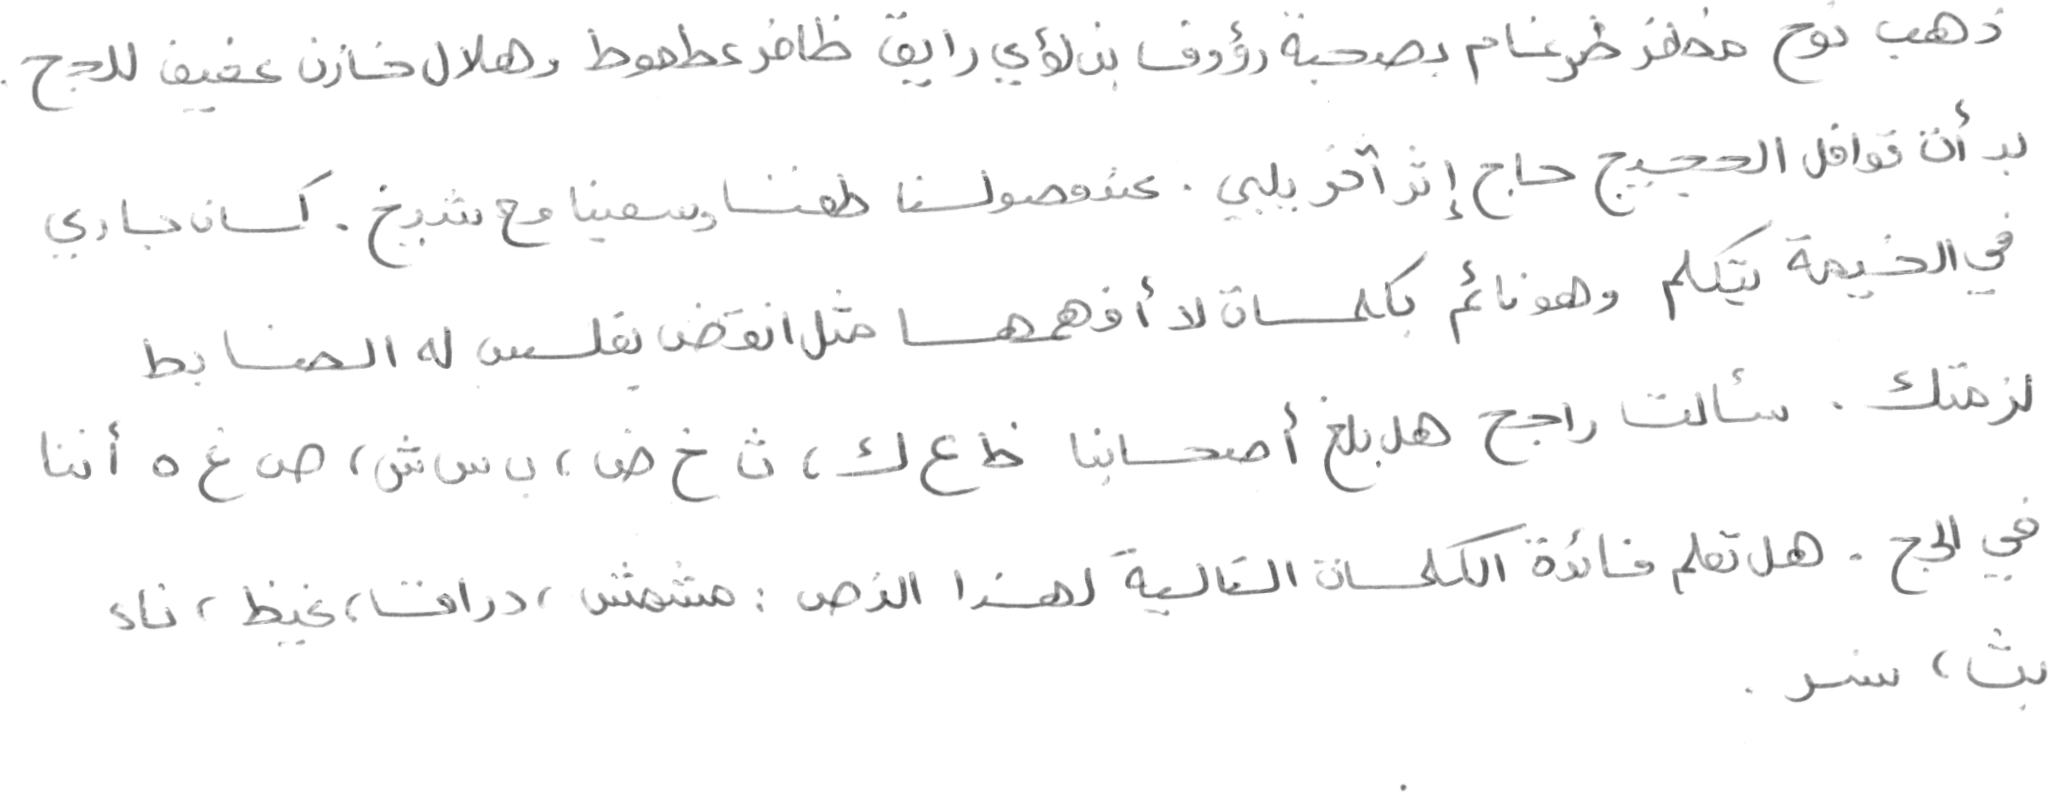 ذهب نوح مظفر ضرغام بصحبة رؤوف بن لؤي رايق ظافر عطعوط وهلال خازن عفيف للحج .
بدأت قوافل الحجيج حاج إثر آخر يلبي . عند وصولنا طفنا وسعينا مع شيخ . كان جاري
في الخيمة يتكلم وهو نائم بكلمات لا أفهمها مثل انقض يقلس له الضابط
لزمتك . سألت راجح هل بلغ أصحابنا ظ ع ك ، ث خ ض ، ب س ش ، ص غ ه أننا
في الحج . هل تعلم فائدة الكلمات التالية لهذا النص : مشمش ، درافت ، غيظ ، ناء
بث ، سنر .